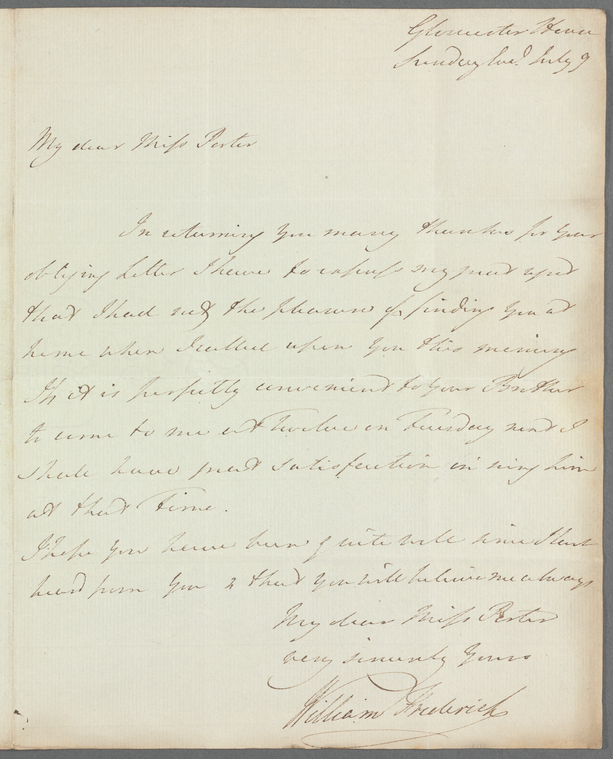 Gloucester House
Sunday Eve.g July 9
My dear Miss Porter
In returning you many thanks for your
obliging Letter I have to express my great regret
that I had not the pleasure of finding you at
home when I called upon you this morning
If it is perfectly convenient to your Brother
to come to me at Twelve on Tuesday next I
shall have great satisfaction in seeing him
at that Time.
I hope you have been quite well since I last
heard from you & that you will believe me always
My dear Miss Porter
very sincerely Yours
William Frederick